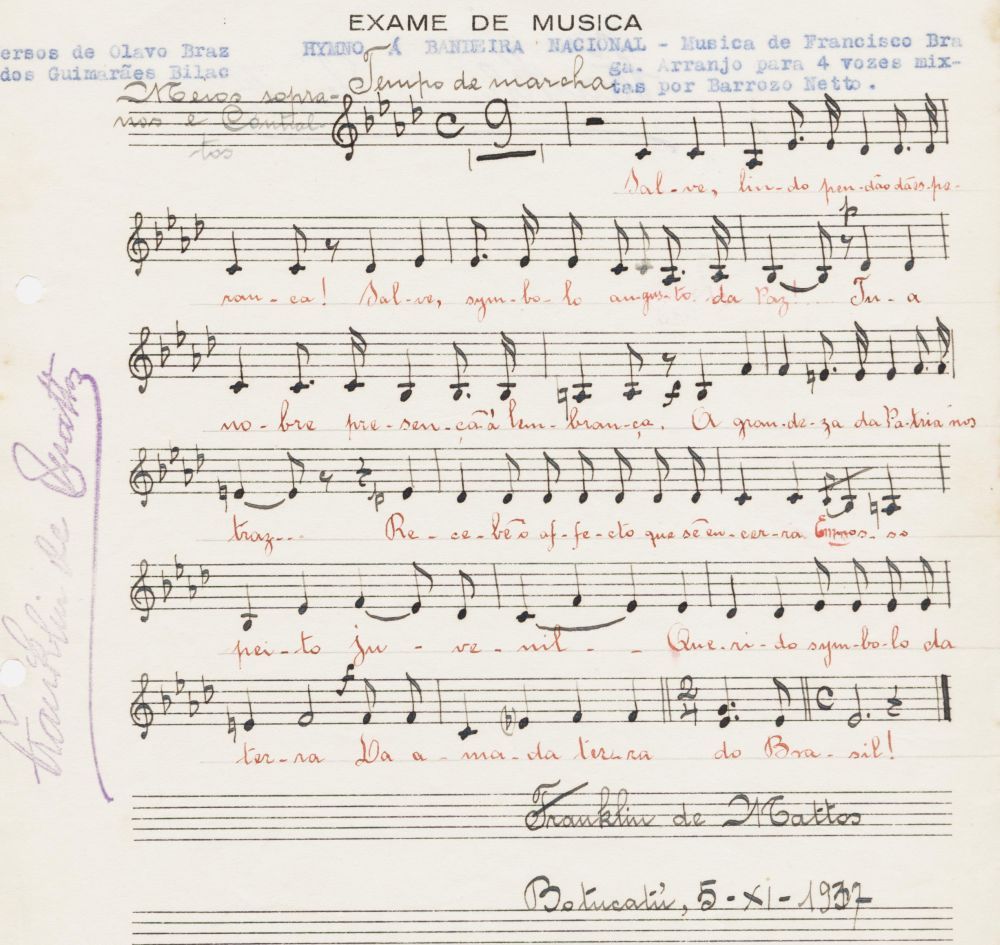 EXAME DE MUSICA
ersos de Olavo Braz HYMNO Á BANDEIRA NACIONAL - Musica de Francisco Bra
dos Guimarães Bilac ga. Arranjo para 4 vozes mix-
tas por Barrozo Netto.
Meios sopra- Tempo de marcha
nos e Contral-
tos
9
Sal-ve, lin-do pen-dão da es-pe-
p
ran-ça! Sal-ve, sym-bo-lo au-gus-to da Paz!... Tu-a
f
no-bre pre-sen-çaá lem-bran-ça. A gran-de-za da Pa-tria nos
p
traz... Re-ce-be o af-fe-cto que se en-cer-ra Em nos-so
pei-to ju-ve-nil-- Que-ri-do sym-bo-lo da
f
2
4
ter-ra Da a-ma-da ter-ra do Bra-sil!
Franklin de Mattos
Botucatú, 5-XI-1937
Franklin de Mattos